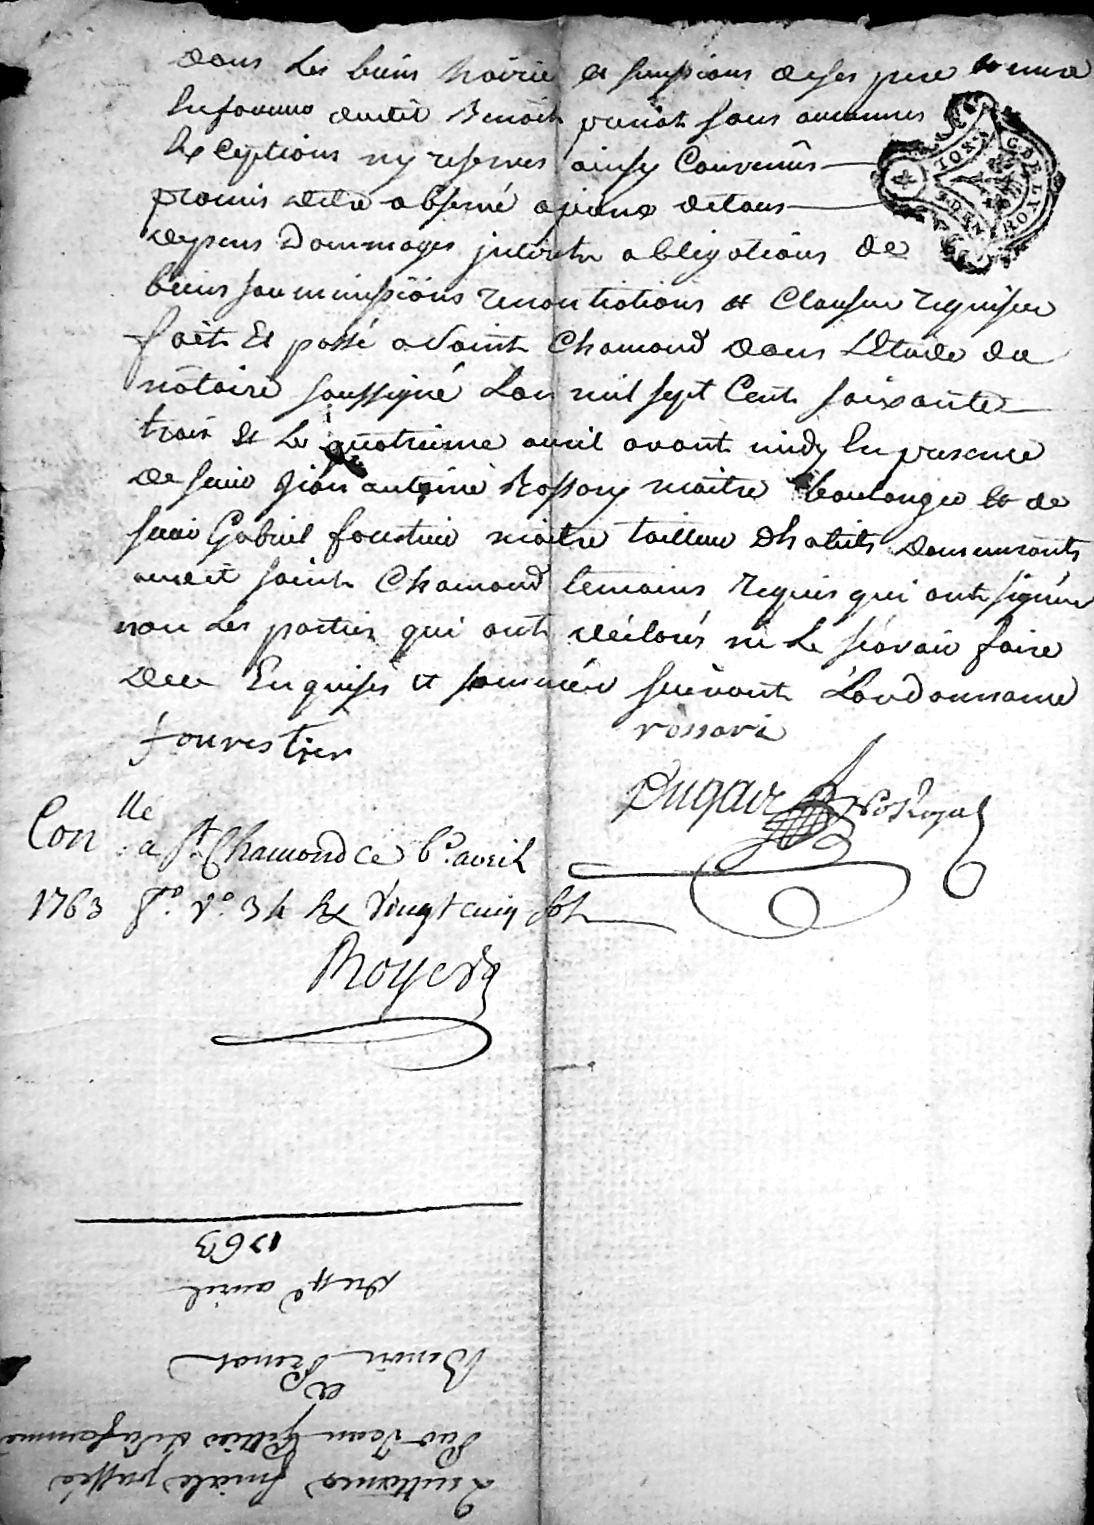 dans les biens hoirie et sucssions de ses pere et mere
En faveur dudit Benoit prenat sans aucunnes
Exceptions ny reserves ainsy Convenûs
promis detre observé a peine de tous
depens Dommages jnterets obligations de
biens soummissiöns renontiations et Clauses requises
fait Et passé a Saint Chamond dans Letude du
notaire soussigné Lan mil sept Cent soixante
trois et Le quatrieme avril avant midy En presence
de sieur jean antoine Rossary maitre boulanger et de
sieur Gabriel fourstier maitre tailleur Dhabits demeurants
audit saint Chamond temoins requis qui ont signés
non Les parties qui ont déclarés ne Le sçavoir faire
dece Enquises et sommées suivant Lordonnance
fourestier rossari
Dugair No Royal
Con lle a St. Chamond ce 6e. avril
1763 fo. vo. 34 Rx vingt cinq sols
Royer
GDELYON
Quittance finale passée
Par Jean Gillier et sa femme
a
Benoit Prenat
du 4e avril
1763